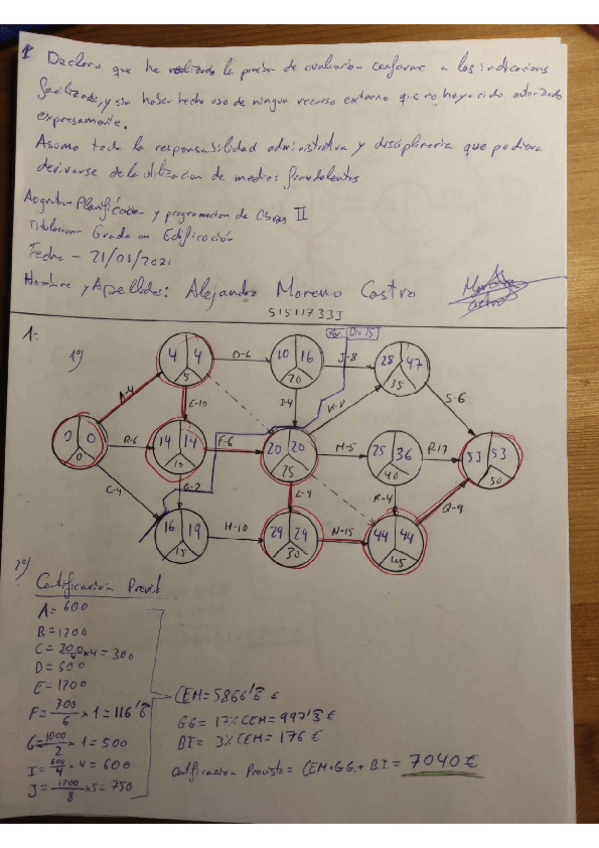 1 Declaro que he realizado la prueba de evaluación conforme a las indicaciones
facilitadas, y sin haber hecho uso de ningun recurso externo que no haya sido autorizado
expresamente.
Asumo toda la responsabilidad administrativa y disciplinaria que pudiera
derivarse de la utilizacion de medios fraudulentos
Asignatura-Planificación y programacion de Obras II
Titulacion- Grado en Edificación
Fecha - 21/01/2021
Nombre y Apellidos: Alejandro Moreno Castro
51511733J
1-
1º)
Dia 15
4 4 5
D-6
10 16 20
J-8
28 47 35
A-4
E-10
I-4
K-8
S-6
0 0 0
B-6
14 14 10
F-6
20 20 25
M-5
25 36 40
R-17
53 53 50
C-4
G-2
L-9
R-4
Q-9
16 19 15
H-10
29 29 30
N-15
44 44 45
2º)
Certificación Previst
A= 600
B= 1200
C= 4 = 300
D= 600
E= 1200
F= 700/6 × 1 = 116'6
G= 1000/2 × 1 = 500
I= 600/4 · 4 = 600
J= 1200/8 × 5 = 750
CEM = 5866'6 €
GG = 17% CEM = 997'3 €
BI = 3% CEM = 176 €
Certificacion Prevista = CEM + GG. + B.I. = 7040 €